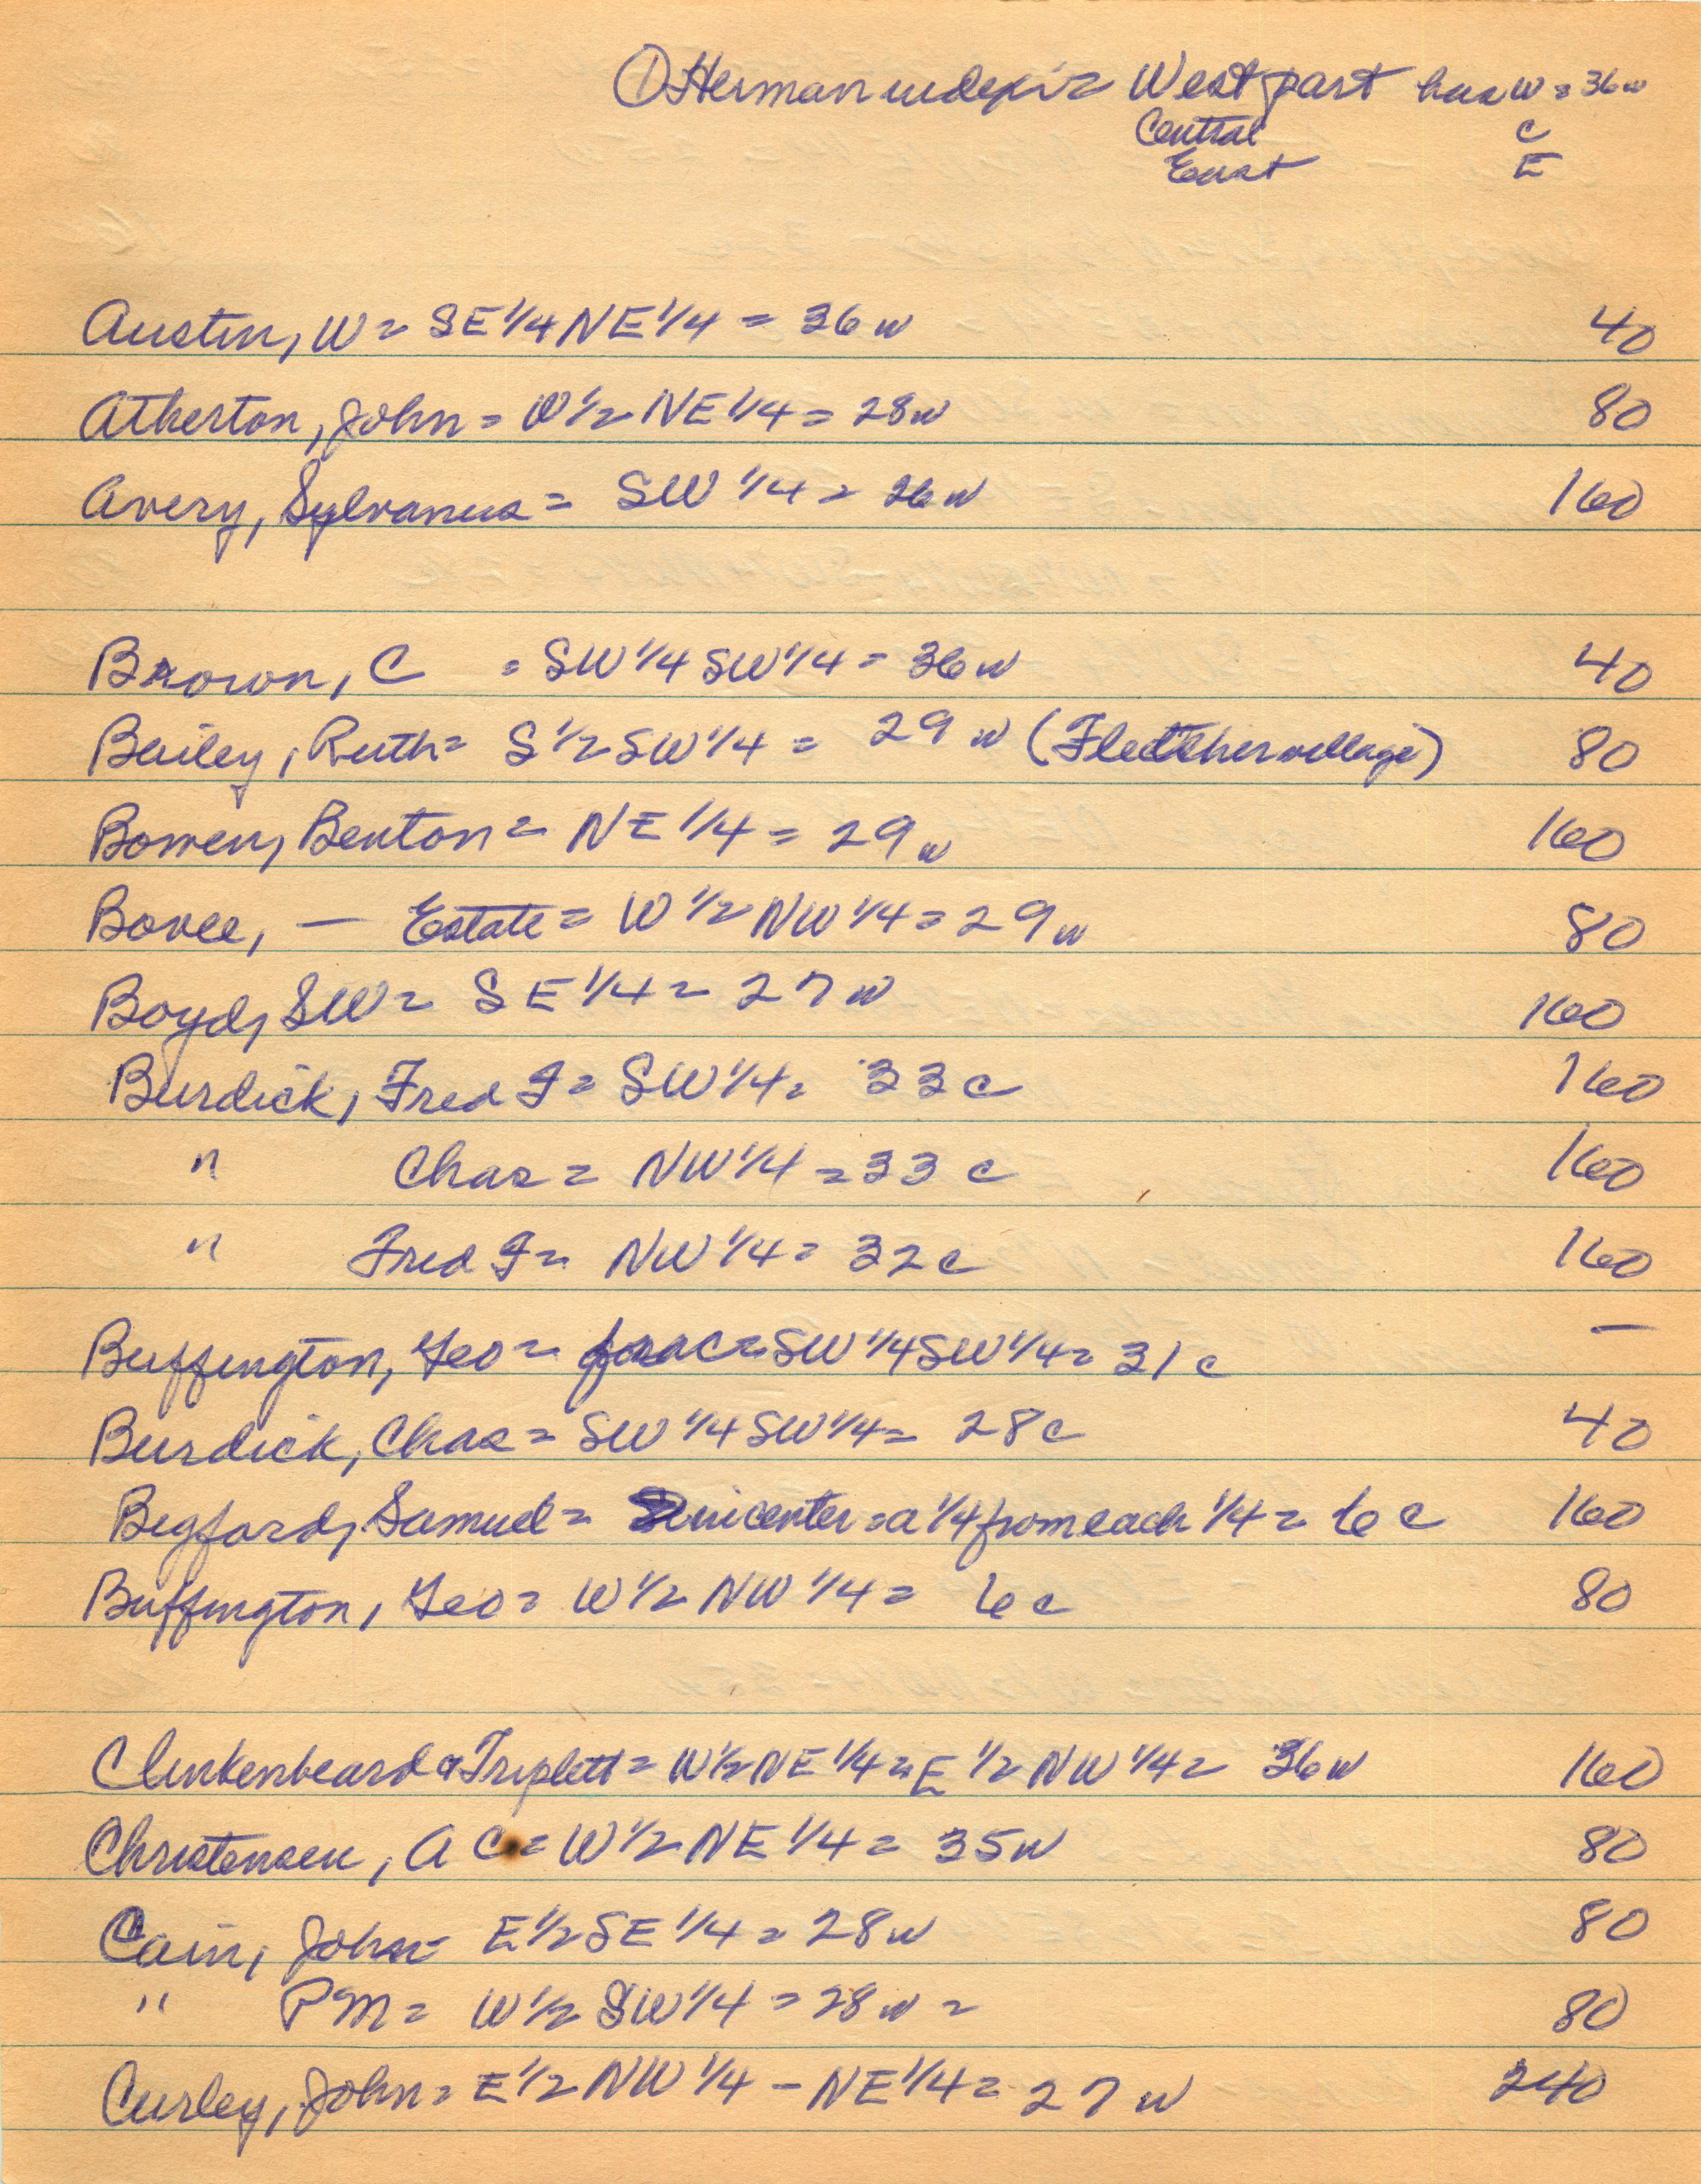 ① Herman index = West part has W = 36 w
Central C
East E
Austin, W = SE 1/4 NE 1/4 = 36 w 40
Atherton, John = W 1/2 NE 1/4 = 28 w 80
Avery, Sylvanus = SW 1/4 = 26 w 160
Brown, C = SW 1/4 SW 1/4 = 36 w 40
Bailey, Ruth = S 1/2 SW 1/4 = 29 w (Fletcher village) 80
Bowen, Benton = NE 1/4 = 29 w 160
Bovee, — Estate = W 1/2 NW 1/4 = 29 w 80
Boyd, SW = SE 1/4 = 27 w 160
Burdick, Fred F = SW 1/4 = 33 c 160
" Chas = NW 1/4 = 33 c 160
" Fred F = NW 1/4 = 32 c 160
Buffington, Geo = frac = SW 1/4 SW 1/4 = 31 c —
Burdick, Chas = SW 1/4 SW 1/4 = 28 c 40
Begford, Samuel = in center = a 1/4 from each 1/4 = 6 c 160
Buffington, Geo = W 1/2 NW 1/4 = 6 c 80
Clinkenbeard & Triplett = W 1/2 NE 1/4 = E 1/2 NW 1/4 = 36 w 160
Christensen, A C = W 1/2 NE 1/4 = 35 w 80
Cain, John = E 1/2 SE 1/4 = 28 w 80
" P M = W 1/2 SW 1/4 = 28 w = 80
Curley, John = E 1/2 NW 1/4 - NE 1/4 = 27 w 240